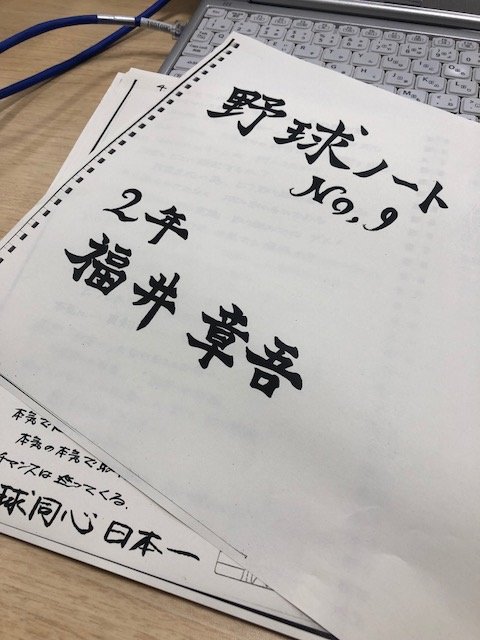 野球ノート
No,9
2年
福井 章吾
本気の本気で
チャンスは巡ってくる。
球同心 日本一